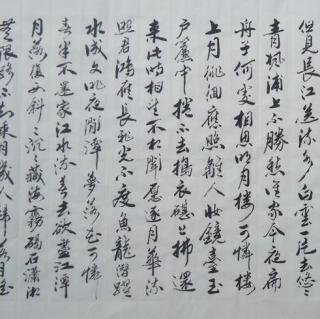 但見長江送流水白雲一片去悠々
青楓浦上不勝愁誰家今夜扁
舟子何處相思明月樓可憐樓
上月徘徊應照離人妝鏡臺玉
戶簾中捲不去搗衣砧上拂還
來此時相望不相聞願逐月華流
照君鴻雁長飛光不度魚龍潛躍
水成文昨夜閒潭夢落花可憐
春半不還家江水流春去欲盡江潭
月落復西斜々沉々藏海霧碣石瀟湘
無限路不知乘月幾人歸落月搖